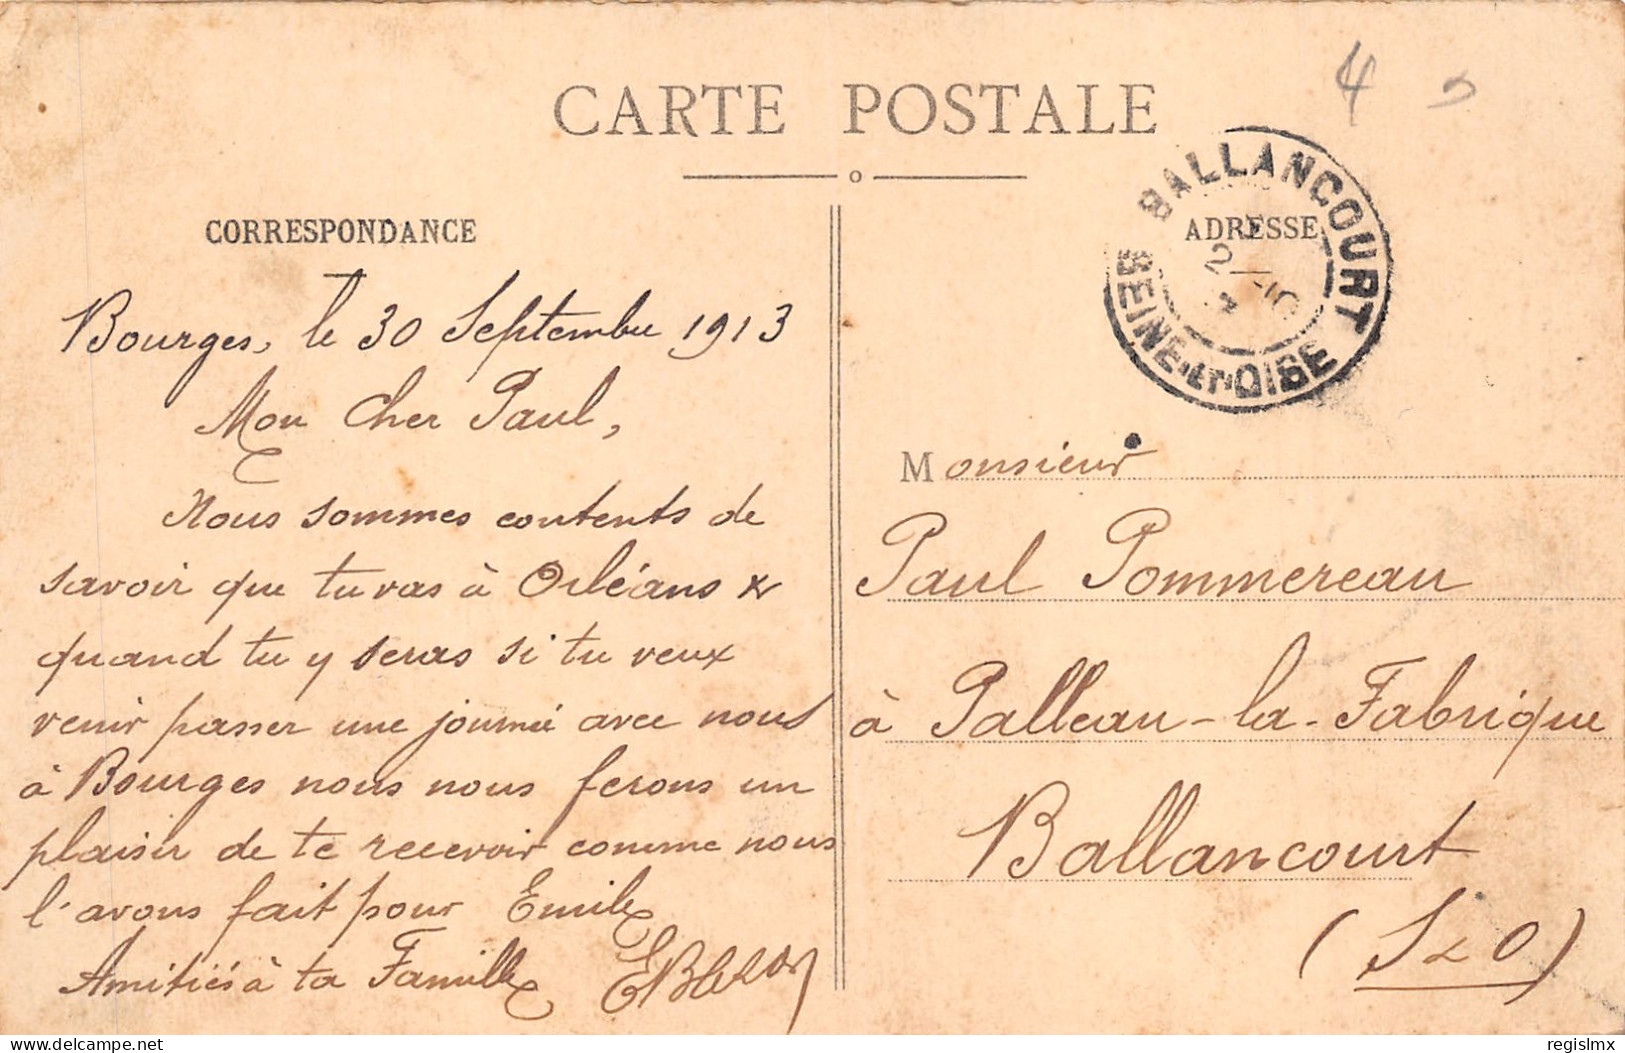 4
CARTE POSTALE
CORRESPONDANCE
ADRESSE
BALLANCOURT
SEINE-ET-OISE
Bourges, le 30 Septembre 1913
Mon Cher Paul,
Nous sommes contents de
savoir que tu vas à Orléans &
quand tu y seras si tu veux
venir passer une journée avec nous
à Bourges nous nous ferons un
plaisir de te recevoir comme nous
l'avons fait pour Emile
Amitiés à ta Famille
Monsieur
Paul Pommereau
à Palleau-la-Fabrique
Ballancourt
(S & O)
delcampe.net
regislmx